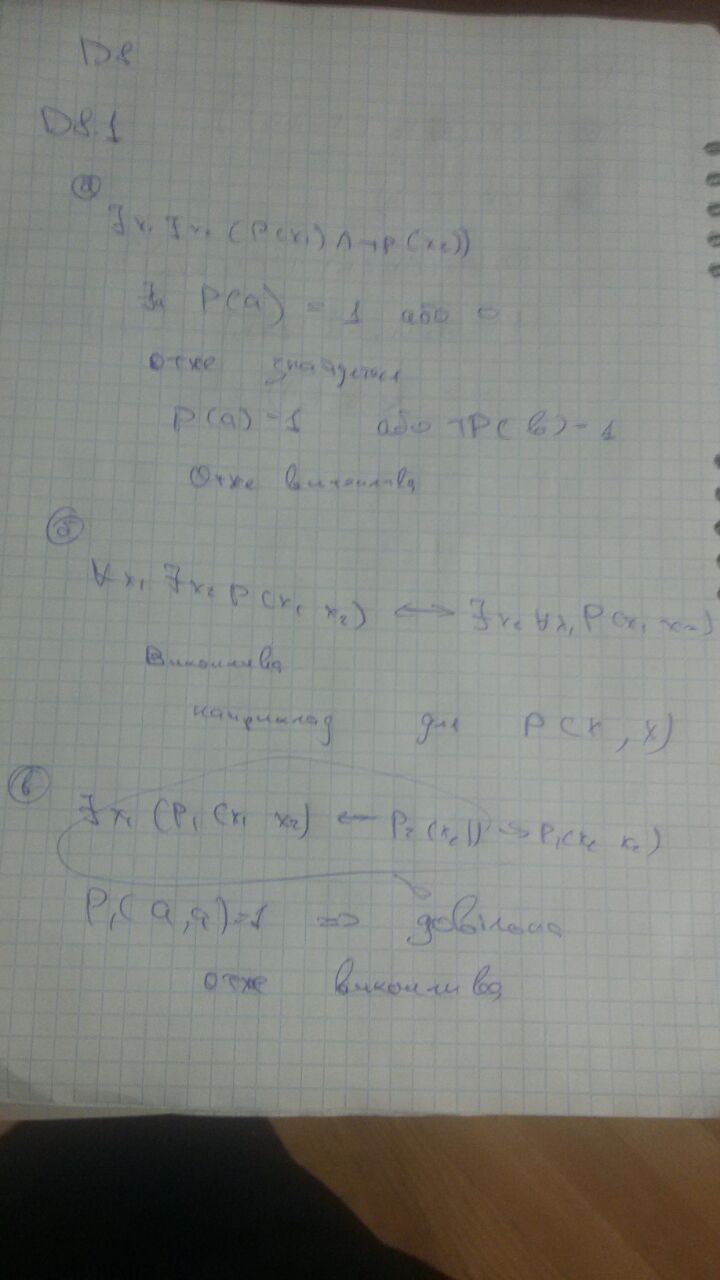 D8
D8.1
а
∃x₁ ∃x₂ (P(x₁) ∧ ¬P(x₂))
P(a) = 1 або 0
отже знайдеться
P(a) = 1 або ¬P(b) = 1
Отже виконлива
б
∀x₁ ∃x₂ P(x₁ x₂) ↔ ∃x₂ ∀x₁ P(x₁ x₂)
Виконлива
наприклад для P(x, x)
в
∃x₁ (P₁(x₁ x₂) ← P₂(x₂)) → P₁(x₂ x₂)
P₁(a, a) = 1 => довільна
отже виконлива